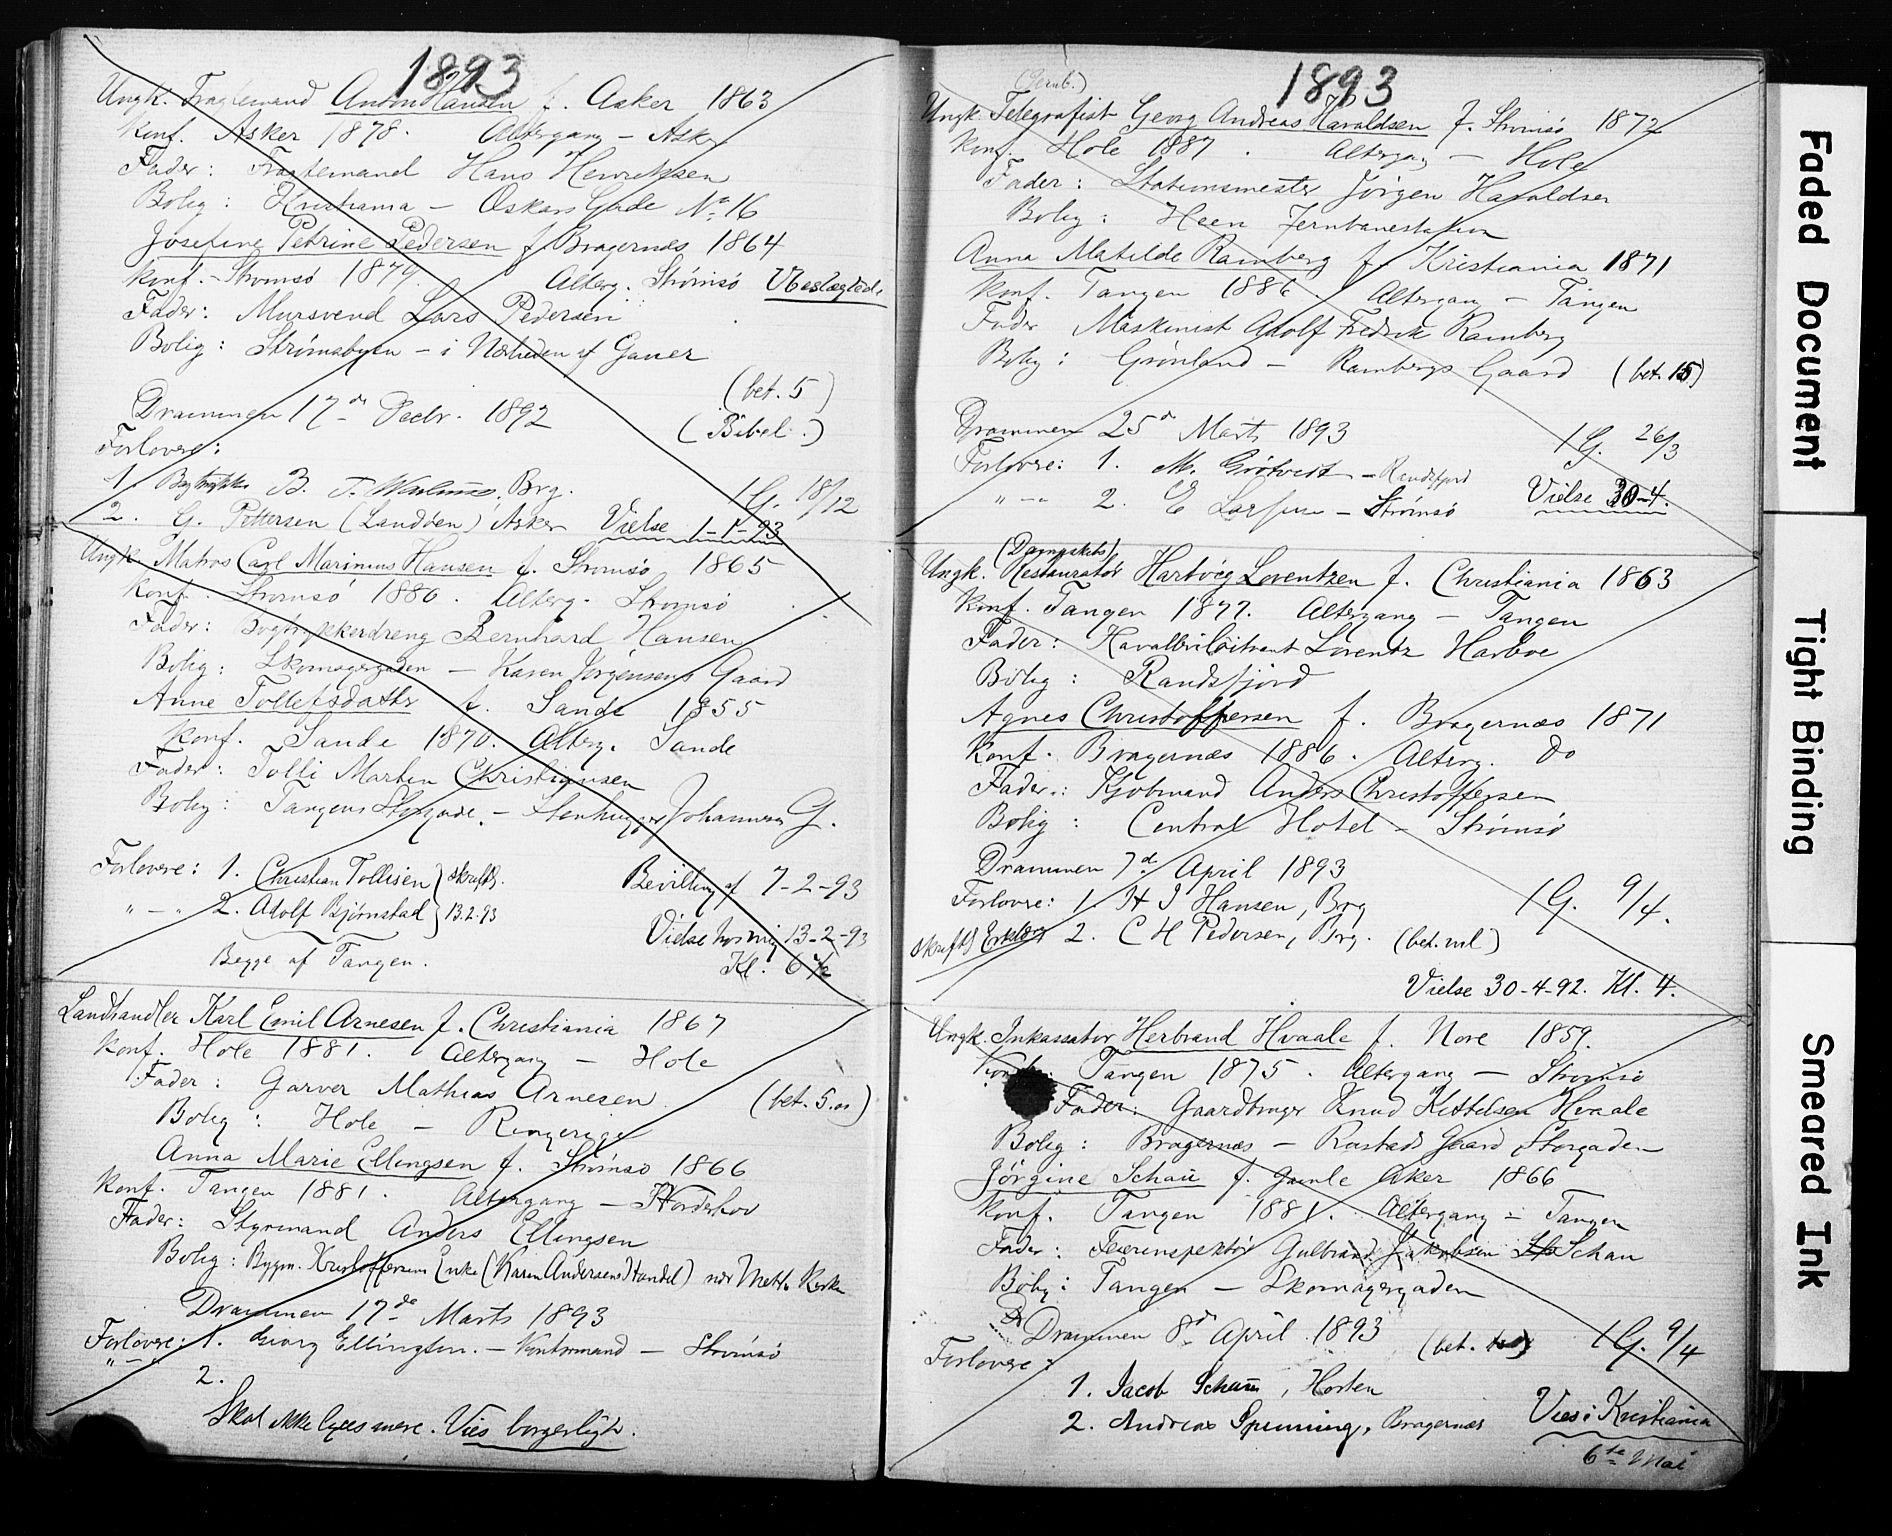 1893
Ungk. Fragtemand Anton Hansen f. Asker 1863
Konf. Asker 1878. Altergang – Asker
Fader: Fragtemand Hans Henriksen
Bolig: Kristiania – Oskars Gade No 16
Josefine Petrine Pedersen f. Bragernæs 1864
Konf. – Strømsø 1879. Alterg. Strømsø Ubeslægtede
Fader: Mursvend Lars Pedersen
Bolig: Strømsbyen – i Nærheden af Gauer
(bet. 5)
Drammen 17de Decbr. 1892
(Bibel.)
Forlovere:
1. B. T. Brg. 1 G. 18/12
2. G. Pettersen (Landøen) Asker Vielse 1-1-93
Ungk. Matros Carl Marinius Hansen f. Strømsø 1865
Konf. Strømsø 1880. Alterg. Strømsø
Fader: Bogtrykkerdreng Bernhard Hansen
Bolig: Skomagergaden – Karen Jørgensens Gaard
Anne Tollefsdatter f. Sande 1855
Konf. Sande 1870. Alterg. Sande
Fader: Tolli Marten Christiansen
Bolig: Tangens Storgade. – Stenhugger Johannesens G.
Forlovere: 1. Christian Tollisen } skriftl. Bevilling af 7-2-93
„ – „ 2. Adolf Bjørnstad } 13.2.93
Vielse hos mig 13-2-93
Begge af Tangen.
Kl. 6 1/2
Landhandler Karl Emil Arnesen f. Christiania 1867
Konf. Hole 1881. Altergang – Hole
Fader: Garver Mathias Arnesen
(bet. 5.)
Bolig: Hole – Ringerige
Anna Marie Ellingsen f. Strømsø 1866
Konf. Tangen 1881. Altergang – Norderhov
Fader: Styrmand Anders Ellingsen
Bolig: Bygm. Kristoffersens Enke (Karen Andersens Handel) nær Meth. Kirke
Drammen 17de Marts 1893
Forlovere: 1. Georg Ellingsen. – Kontormand – Strømsø
„ – „
2.
Skal ikke lyses mere. Vies borgerligt.
1893
(Jernb.)
Ungk. Telegrafist Georg Andreas Haraldsen f. Strømsø 1872
Konf. Hole 1887. Altergang – Hole
Fader: Stationsmester Jørgen Haraldsen
Bolig: Heen Jernbanestation
Anna Matilde Ramberg f. Kristiania 1871
Konf. Tangen 1886. Altergang – Tangen
Fader Maskinist Adolf Fredrik Ramberg
Bolig: Grønland – Rambergs Gaard (bet. 15)
Drammen 25de Marts 1893 1 G. 26/3
Forlovere: 1. M. Grøtvedt – Randsfjord
„ – „ 2. E Larsen – Strømsø Vielse 30-4.
(Dampskibs)
Ungk. Restauratør Hartvig Lorentzen f. Christiania 1863
Konf. Tangen 1877. Altergang – Tangen
Fader: Kavalleriløitnant Lorentz Harboe
Bolig: Randsfjord
Agnes Christoffersen f. Bragernæs 1871
Konf. Bragernæs 1886. Alterg. do
Fader: Kjøbmand Anders Christoffersen
Bolig: Central Hotel – Strømsø
Drammen 7d. April 1893
Forlovere: 1. H J Hansen, Brg 1 G. 9/4.
skriftl Erklær 2. C H Pedersen, Brg. (bet. vel)
Vielse 30-4-92. Kl. 4.
Ungk. Inkassator Herbrand Hvaale f. Nore 1859.
Konf.: Tangen 1875. Altergang – Strømsø
Fader: Gaardbruger Knud Kittelsen Hvaale
Bolig: Bragernæs – Rustads Gaard Storgaden
Jørgine Schau f. Gamle Aker 1866
Konf. Tangen 1881. Altergang – Tangen
Fader: Feierinspektør Gulbrand Jakobsen Schau
Bolig: Tangen – Skomagergaden
Drammen 8de April 1893 (bet. 10) 1 G. 9/4
Forlovere:
1. Jacob Schau, Horten
Vies i Kristiania
2. Andreas Spenning, Bragernæs
6te Mai
Faded Document
Tight Binding
Smeared Ink